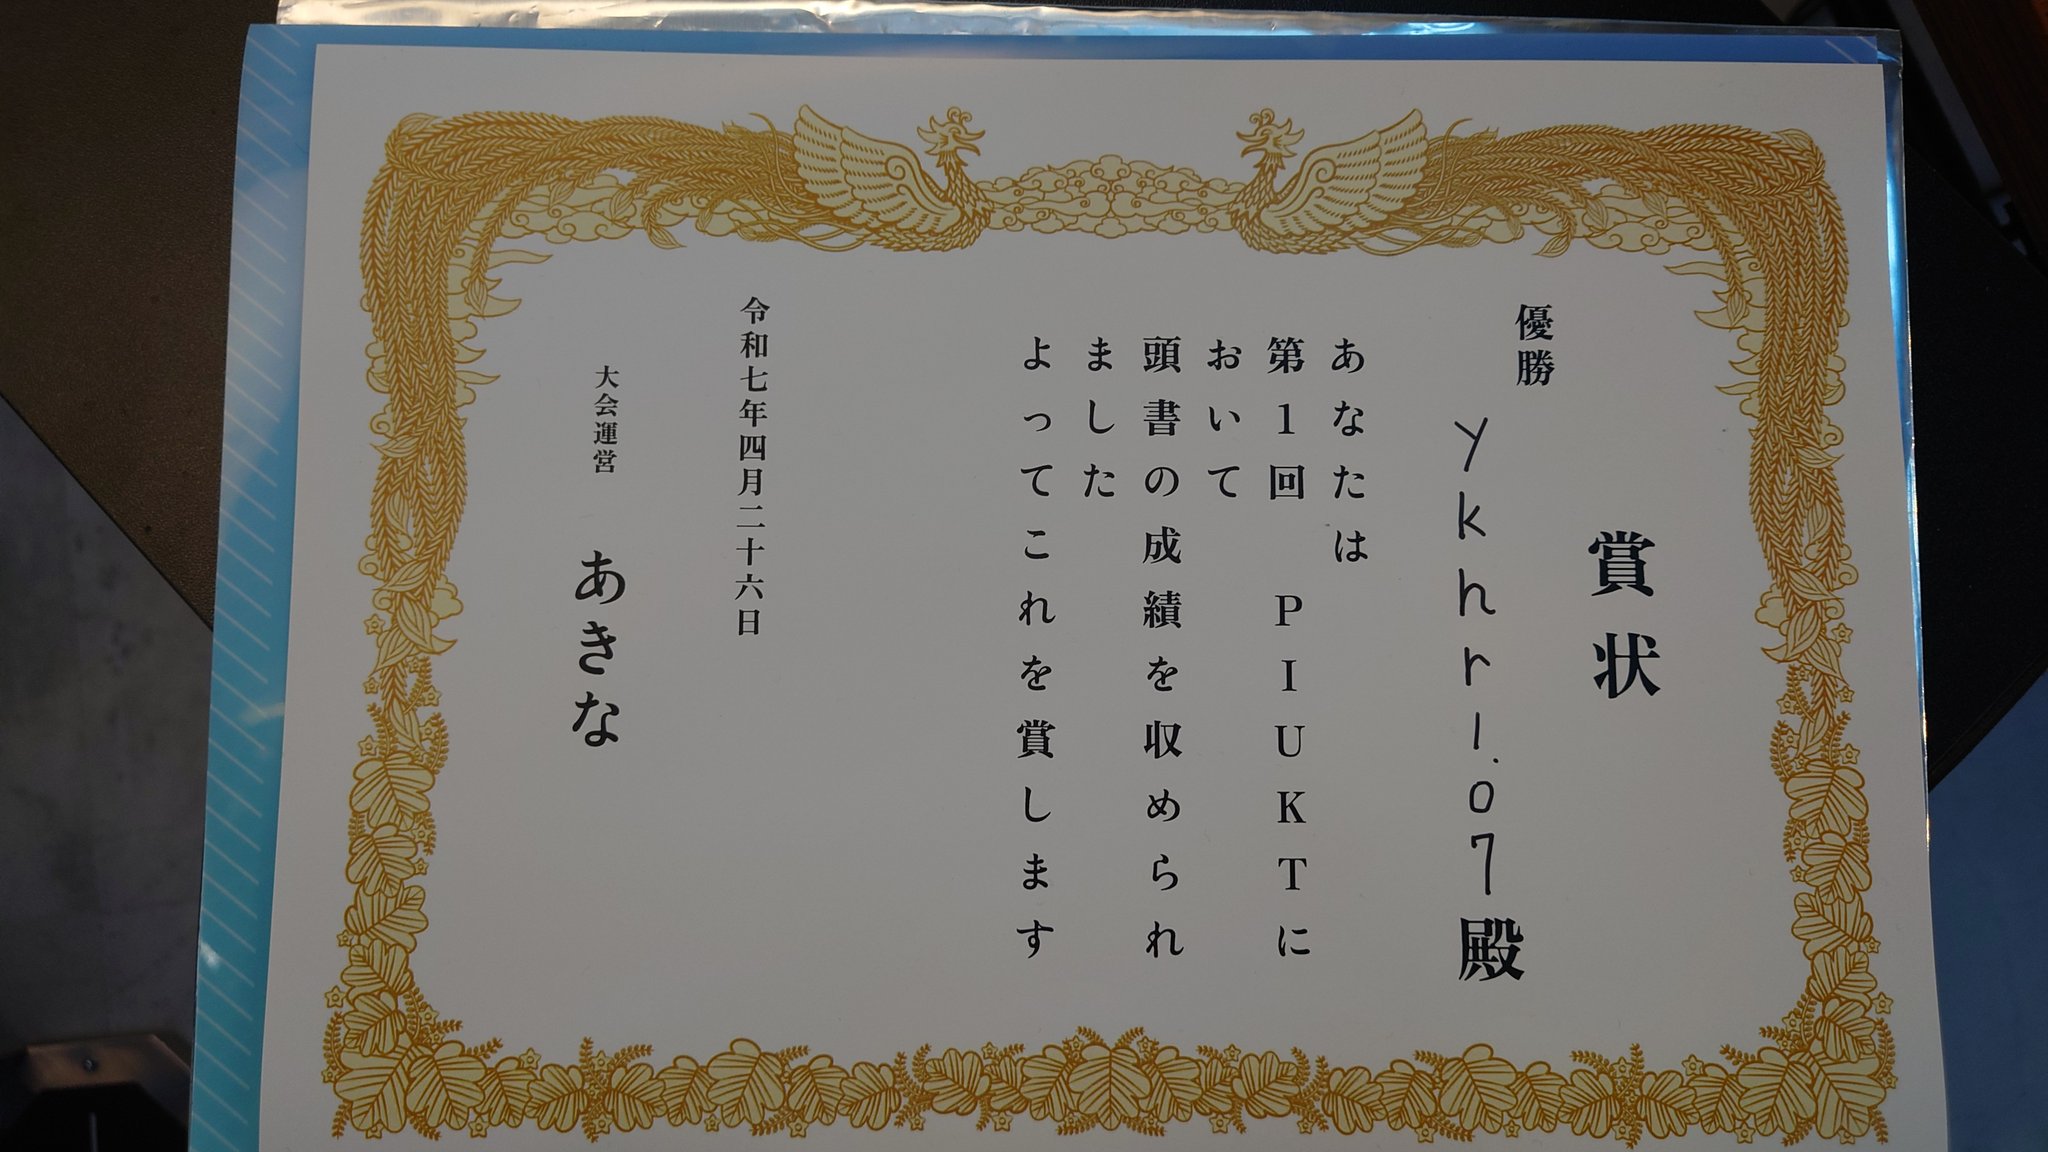 賞状
優勝
ykhrl.07殿
あなたは
第1回 PIUKTに
おいて
頭書の成績を収められ
ました
よってこれを賞します
令和七年四月二十六日
大会運営 あきな